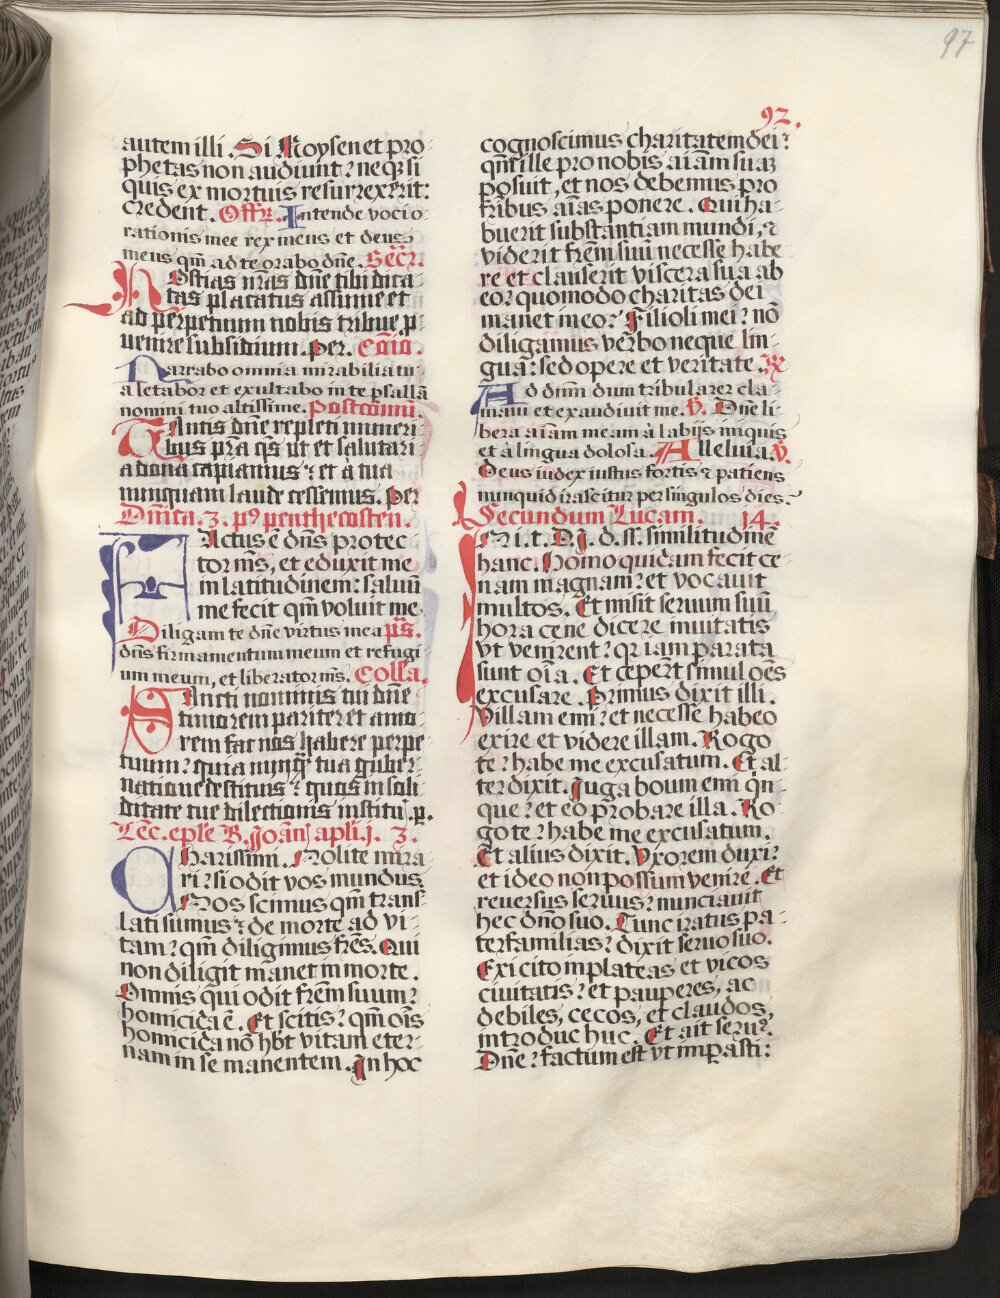 97
92.
autem illi. Si Moysen et pro
phetas non audiunt? neqȝ si
quis ex mortuis resurrexerit:
credent. Offr̃. Intende voci o
rationis mee rex meus et deus
meus qm̃ ad te orabo dñe. Secr̃.
Hostias nr̃as dñe tibi dica
tas placatus assume et
ad perpetuum nobis tribue p̱
uenire subsidium. Per. Cõio.
Narrabo omnia mirabilia tu
a letabor et exultabo in te psallã
nomini tuo altissime. Postcõmũ.
Tantis dñe repleti muneri
bus pr̃a q̃s ut et salutari
a dona capiamus: et a tua
nunquam laude cessemus. Per
Dñica. 3. pꝰ penthecosten.
Factus ẽ dñs protec
tor mꝰs, et eduxit me
in latitudinem: saluũ
me fecit qm̃ voluit me.
Diligam te dñe virtus mea p̃s.
dñs firmamentum meum et refugi
um meum, et liberator mꝰs. Colla.
Sancti nominis tui dñe
timorem pariter et amo
rem fac nos habere perpe
tuum? quia nunq̃ tua guber
natione destitus? quos in soli
ditate tue dilectionis institus. p̱.
Lẽc. epl̃e B. Joãn̄ apl̃i. j. 3.
Charissimi. Nolite mira
ri? si odit vos mundus.
Nos scimus qm̃ trans
lati sumus? de morte ad vi
tam? qm̃ diligimus fr̃es. Qui
non diligit manet in morte.
Omnis qui odit fr̃em suum?
homicida ẽ. Et scitis? qm̃ ois̃
homicida nõ hb̃t vitam eter
nam in se manentem. In hoc
cognoscimus charitatem dei?
qm̃ ille pro nobis aĩam suaȝ
posuit, et nos debemus pro
fr̃ibus aĩas ponere. Qui ha
buerit substantiam mundi, ⁊
viderit fr̃em suũ necesse habe
re et clauserit viscera sua ab
eo? quomodo charitas dei
manet in eo? Filioli mei? nõ
diligamus verbo neque lin
gua: sed opere et veritate. ℟
Ad dñm dum tribularer cla
maui et exaudiuit me. ℣. Dñe li
bera aĩam meam à labijs iniquis
et à lingua dolosa. Alleluia. ℣.
Deus iudex iustus fortis ⁊ patiens
nunquid irascitur per singulos dies?
Secundum Lucam. 14.
In i. t. Di. d. ss. similitudinẽ
hanc. Homo quidam fecit ce
nam magnam? et vocauit
multos. Et misit seruum suũ
hora cene dicere inuitatis
vt venirent? qr iam parata
sunt oĩa. Et ceper̃t simul oẽs
excusare. Primus dixit illi.
Villam emi? et necesse habeo
exire et videre illam. Rogo
te? habe me excusatum. Et al
ter dixit. Juga boum emi q̃n
que? et eo probare illa. Ro
go te? habe me excusatum.
Et alius dixit. Vxorem duxi?
et ideo non possum venire. Et
reuersus seruus? nunciauit
hec dño suo. Tunc iratus pa
terfamilias? dixit seruo suo.
Exi cito in plateas et vicos
ciuitatis? et pauperes, ac
debiles, cecos, et claudos,
introduc huc. Et ait seruꝰ.
Dñe? factum est vt imp̱asti: